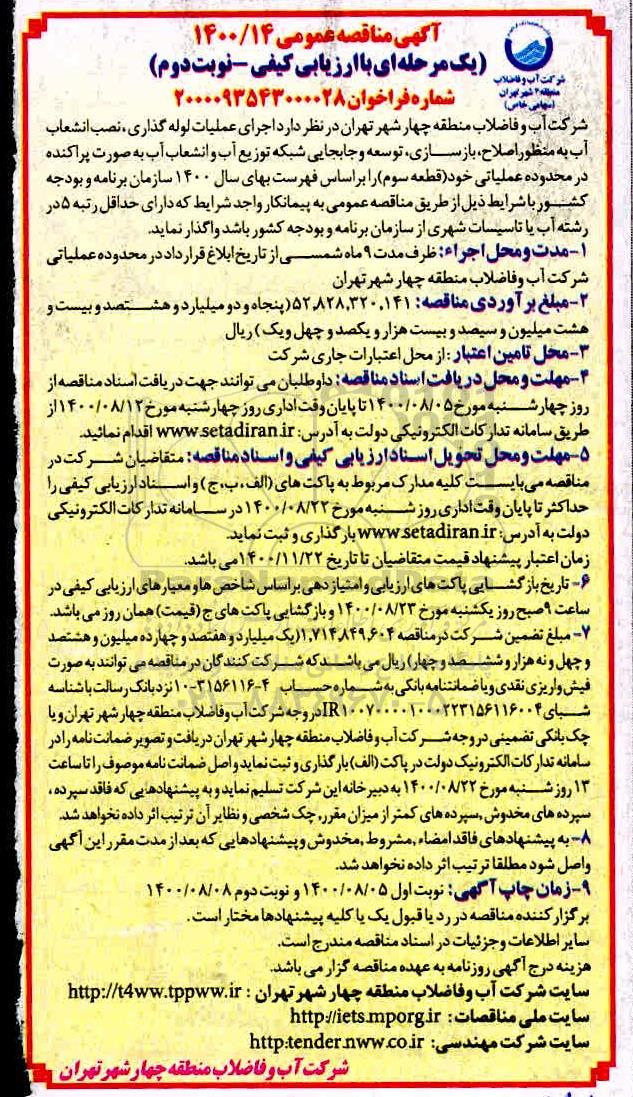 آگهی مناقصه عمومی ۱۴۰۰/۱۴
(یک مرحله ای با ارزیابی کیفی - نوبت دوم)
شماره فراخوان ۲۰۰۰۰۹۳۵۴۳۰۰۰۰۲۸
شرکت آب و فاضلاب
منطقه ۴ شهر تهران
(سهامی خاص)
شرکت آب و فاضلاب منطقه چهار شهر تهران در نظر دارد اجرای عملیات لوله گذاری، نصب انشعاب
آب به منظور اصلاح، بازسازی، توسعه و جابجایی شبکه توزیع آب و انشعاب آب به صورت پراکنده
در محدوده عملیاتی خود (قطعه سوم) را براساس فهرست بهای سال ۱۴۰۰ سازمان برنامه و بودجه
کشور با شرایط ذیل از طریق مناقصه عمومی به پیمانکار واجد شرایط که دارای حداقل رتبه ۵ در
رشته آب یا تاسیسات شهری از سازمان برنامه و بودجه کشور باشد واگذار نماید.
۱- مدت و محل اجراء: ظرف مدت ۹ ماه شمسی از تاریخ ابلاغ قرارداد در محدوده عملیاتی
شرکت آب وفاضلاب منطقه چهار شهر تهران
۲- مبلغ برآوردی مناقصه: ۵۲,۸۲۸,۳۲۰,۱۴۱ (پنجاه و دو میلیارد و هشتصد و بیست و
هشت میلیون و سیصد و بیست هزار و یکصد و چهل ویک) ریال
۳- محل تامین اعتبار: از محل اعتبارات جاری شرکت
۴- مهلت و محل دریافت اسناد مناقصه: داوطلبان می توانند جهت دریافت اسناد مناقصه از
روز چهارشنبه مورخ ۱۴۰۰/۰۸/۰۵ تا پایان وقت اداری روز چهارشنبه مورخ ۱۴۰۰/۰۸/۱۲ از
طریق سامانه تدارکات الکترونیکی دولت به آدرس: www.setadiran.ir اقدام نمائید.
۵- مهلت و محل تحویل اسناد ارزیابی کیفی و اسناد مناقصه: متقاضیان شرکت در
مناقصه می بایست کلیه مدارک مربوط به پاکت های (الف، ب، ج) و اسناد ارزیابی کیفی را
حداکثر تا پایان وقت اداری روز شنبه مورخ ۱۴۰۰/۰۸/۲۲ در سامانه تدارکات الکترونیکی
دولت به آدرس: www.setadiran.ir بارگذاری و ثبت نماید.
زمان اعتبار پیشنهاد قیمت متقاضیان تا تاریخ ۱۴۰۰/۱۱/۲۲ می باشد.
۶- تاریخ بازگشایی پاکت های ارزیابی و امتیاز دهی براساس شاخص ها و معیارهای ارزیابی کیفی در
ساعت ۹ صبح روز یکشنبه مورخ ۱۴۰۰/۰۸/۲۳ و بازگشایی پاکت های ج (قیمت) همان روز می باشد.
۷- مبلغ تضمین شرکت در مناقصه ۱,۷۱۴,۸۴۹,۶۰۴ (یک میلیارد و هفتصد و چهارده میلیون و هشتصد
و چهل و نه هزار و ششصد و چهار) ریال می باشد که شرکت کنندگان در مناقصه می توانند به صورت
فیش واریزی نقدی و یا ضمانتنامه بانکی به شماره حساب ۴-۳۱۵۶۱۱۶-۱۰ نزد بانک رسالت با شناسه
شبای IR۱۰۰۷۰۰۰۰۱۰۰۰۲۲۳۱۵۶۱۱۶۰۰۴ در وجه شرکت آب و فاضلاب منطقه چهار شهر تهران و یا
چک بانکی تضمینی در وجه شرکت آب و فاضلاب منطقه چهار شهر تهران دریافت و تصویر ضمانت نامه را در
سامانه تدارکات الکترونیک دولت در پاکت (الف) بارگذاری و ثبت نماید و اصل ضمانت نامه موصوف را تا ساعت
۱۳ روز شنبه مورخ ۱۴۰۰/۰۸/۲۲ به دبیرخانه این شرکت تسلیم نماید و به پیشنهادهایی که فاقد سپرده،
سپرده های مخدوش، سپرده های کمتر از میزان مقرر، چک شخصی و نظایر آن ترتیب اثر داده نخواهد شد.
۸- به پیشنهادهای فاقد امضاء، مشروط، مخدوش و پیشنهادهایی که بعد از مدت مقرر این آگهی
واصل شود مطلقا ترتیب اثر داده نخواهد شد.
۹- زمان چاپ آگهی: نوبت اول ۱۴۰۰/۰۸/۰۵ و نوبت دوم ۱۴۰۰/۰۸/۰۸
برگزار کننده مناقصه در رد یا قبول یک یا کلیه پیشنهادها مختار است.
سایر اطلاعات و جزئیات در اسناد مناقصه مندرج است.
هزینه درج آگهی روزنامه به عهده مناقصه گزار می باشد.
سایت شرکت آب و فاضلاب منطقه چهار شهر تهران: http://t4ww.tppww.ir
سایت ملی مناقصات: http://iets.mporg.ir
سایت شرکت مهندسی: http:tender.nww.co.ir
شرکت آب و فاضلاب منطقه چهار شهر تهران